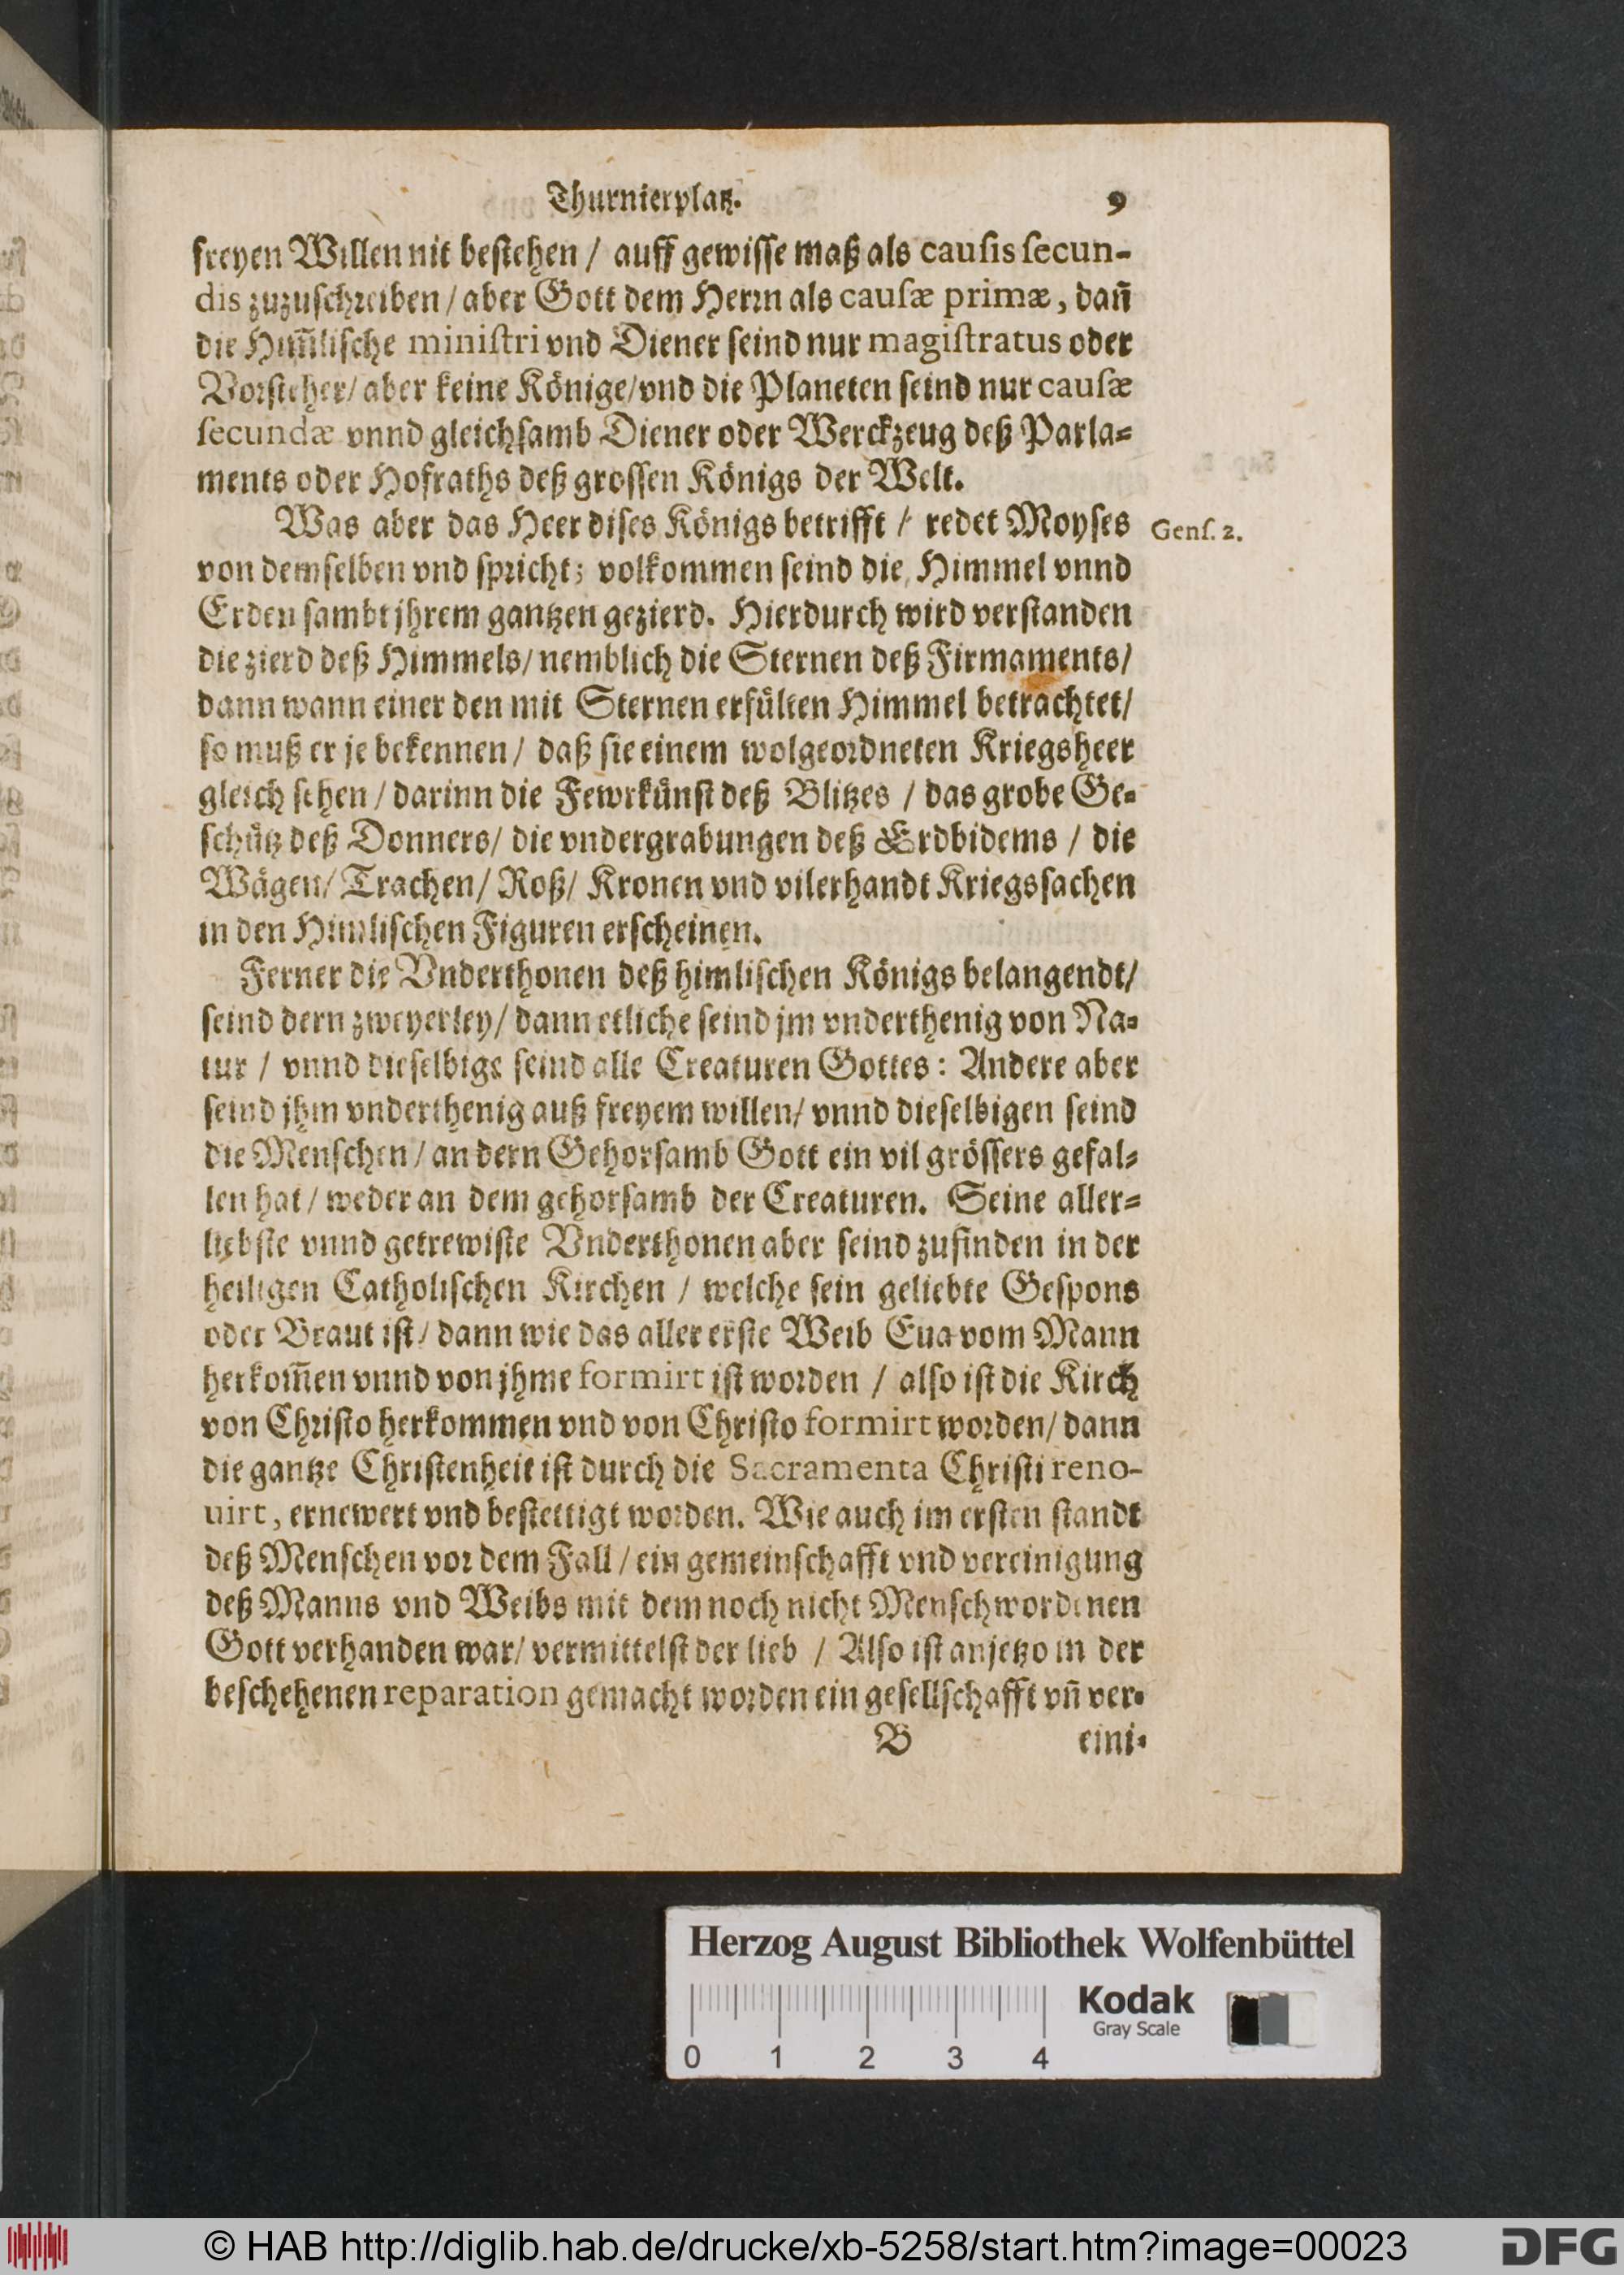 Thurnierplatz. 9
freyen Willen nit bestehen / auff gewisse maß als causis secun-
dis zuzuschreiben / aber Gott dem Herrn als causæ primæ, dañ
die Him̃lische ministri vnd Diener seind nur magistratus oder
Vorsteher / aber keine Könige / vnd die Planeten seind nur causæ
secundæ vnnd gleichsamb Diener oder Werckzeug deß Parla-
ments oder Hofraths deß grossen Königs der Welt.
Was aber das Heer dises Königs betrifft / redet Moyses
Gens. 2.
von demselben vnd spricht; volkommen seind die Himmel vnnd
Erden sambt jhrem gantzen gezierd. Hierdurch wird verstanden
die zierd deß Himmels / nemblich die Sternen deß Firmaments /
dann wann einer den mit Sternen erfülten Himmel betrachtet /
so muß er je bekennen / daß sie einem wolgeordneten Kriegsheer
gleich sehen / darinn die Fewrkünst deß Blitzes / das grobe Ge-
schütz deß Donners / die vndergrabungen deß Erdbidems / die
Wägen / Trachen / Roß / Kronen vnd vilerhandt Kriegssachen
in den Himlischen Figuren erscheinen.
Ferner die Vnderthonen deß himlischen Königs belangendt /
seind dern zweyerley / dann etliche seind jm vnderthenig von Na-
tur / vnnd dieselbige seind alle Creaturen Gottes: Andere aber
seind jhm vnderthenig auß freyem willen / vnnd dieselbigen seind
die Menschen / an dern Gehorsamb Gott ein vil grössers gefal-
len hat / weder an dem gehorsamb der Creaturen. Seine aller-
liebste vnnd getrewiste Vnderthonen aber seind zufinden in der
heiligen Catholischen Kirchen / welche sein geliebte Gespons
oder Braut ist / dann wie das aller erste Weib Eua vom Mann
herkom̃en vnnd von jhme formirt ist worden / also ist die Kirch
von Christo herkommen vnd von Christo formirt worden / dann
die gantze Christenheit ist durch die Sacramenta Christi reno-
uirt, ernewert vnd bestettigt worden. Wie auch im ersten standt
deß Menschen vor dem Fall / ein gemeinschafft vnd vereinigung
deß Manns vnd Weibs mit dem noch nicht Mensch wordenen
Gott verhanden war / vermittelst der lieb / Also ist anjetzo in der
beschehenen reparation gemacht worden ein gesellschafft vñ ver-
B eini-
Herzog August Bibliothek Wolfenbüttel
Kodak
Gray Scale
0 1 2 3 4
© HAB http://diglib.hab.de/drucke/xb-5258/start.htm?image=00023
DFG